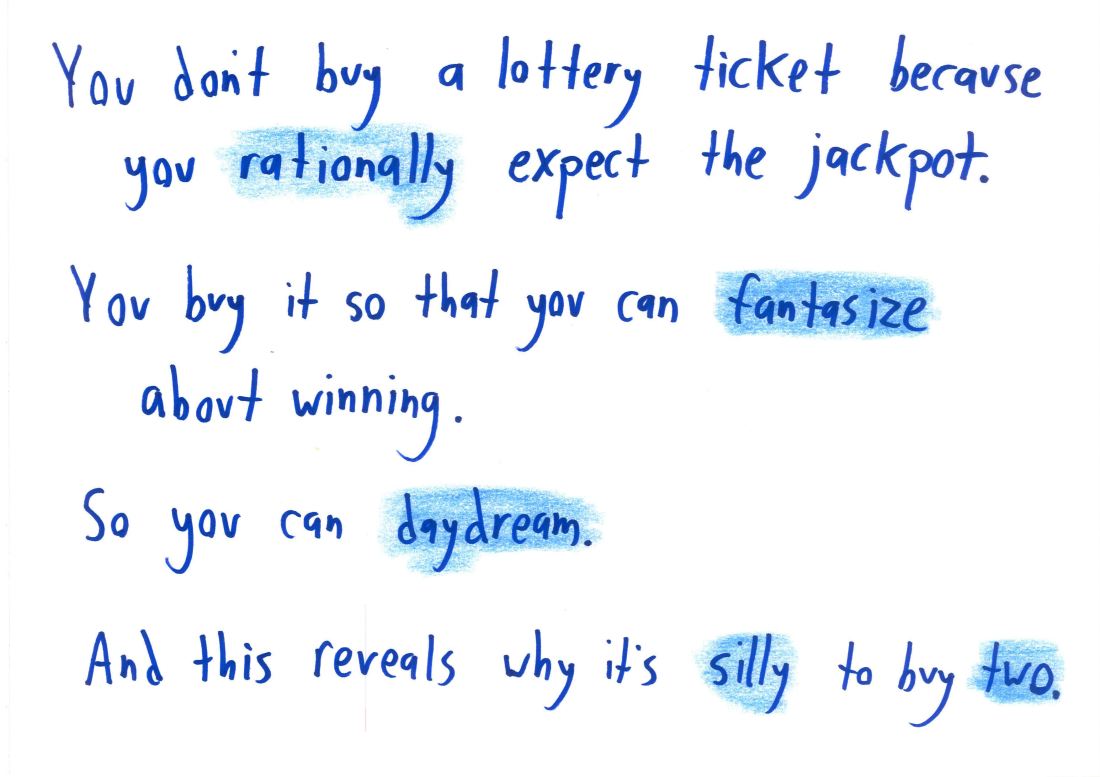 You don't buy a lottery ticket because
you rationally expect the jackpot.
You buy it so that you can fantasize
about winning.
So you can daydream.
And this reveals why it's silly to buy two.